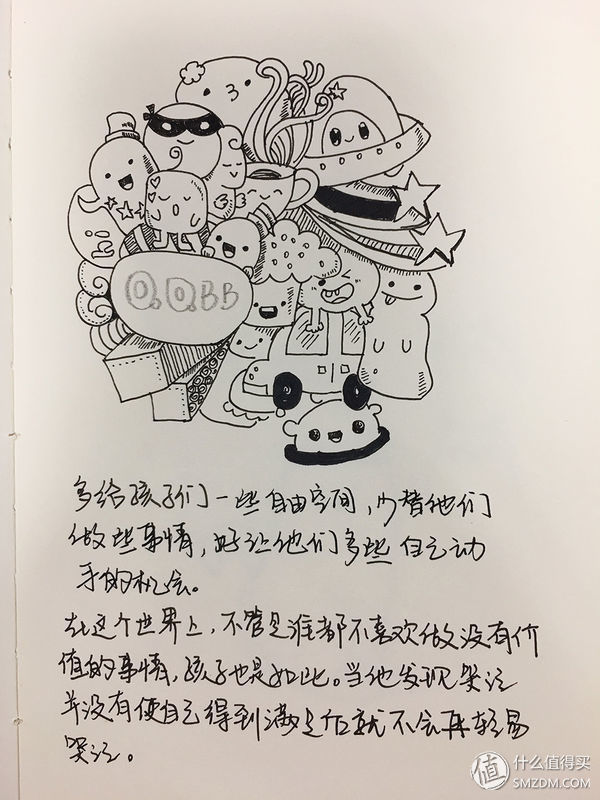 hi
Q.QBB
多给孩子们一些自由空间,少替他们
做些事情,好让他们多些自己动
手的机会。
在这个世界上,不管是谁都不喜欢做没有价
值的事情,孩子也是如此。当他发现哭泣
并没有使自己得到满足后就不会再轻易
哭泣。
值 什么值得买
SMZDM.COM